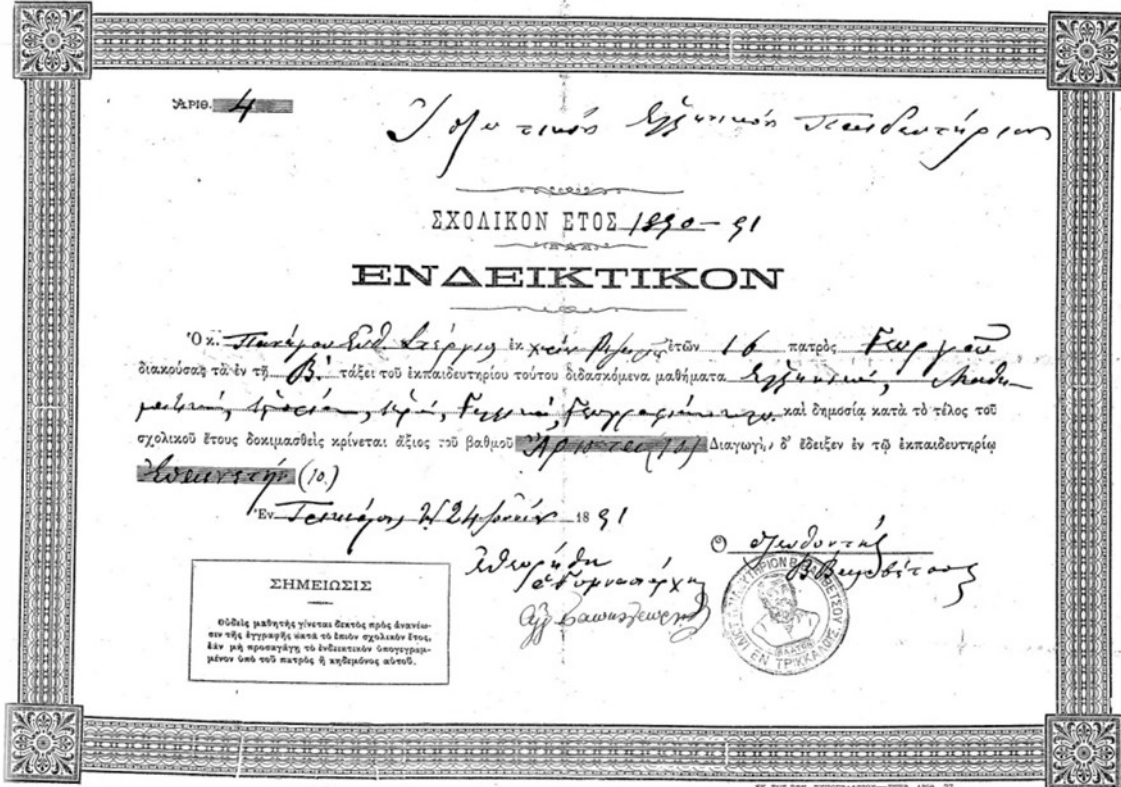 ἈΡΙΘ. 4
Ἰδιωτικὸν Ἑλληνικὸν Παιδευτήριον
ΣΧΟΛΙΚΟΝ ΕΤΟΣ 1890-91
ΕΝΔΕΙΚΤΙΚΟΝ
Ὁ κ. Στέργιος ἐκ ἐτῶν 16 πατρὸς Γεωργίου
διακούσας τὰ ἐν τῇ Β΄. τάξει τοῦ ἐκπαιδευτηρίου τούτου διδασκόμενα μαθήματα Ἑλληνικά, Μαθη-
ματικά, Ἱστορίαν, Ἱερά, Γαλλικά, Γεωγραφίαν κ.τ.λ. καὶ δημοσίᾳ κατὰ τὸ τέλος τοῦ
σχολικοῦ ἔτους δοκιμασθεὶς κρίνεται ἄξιος τοῦ βαθμοῦ Ἄριστα (10) Διαγωγὴν δ' ἔδειξεν ἐν τῷ ἐκπαιδευτηρίῳ
(10.)
Ἐν Τρικκάλοις τῇ 24 Ἰουνίου 1891
Ἐθεωρήθη
ὁ Γυμνασιάρχης
Ὁ Διευθυντὴς
ΕΝ ΤΡΙΚΚΑΛΟΙΣ
ΠΛΑΤΩΝ
ΣΗΜΕΙΩΣΙΣ
Οὐδεὶς μαθητὴς γίνεται δεκτὸς πρὸς ἀνανέω-
σιν τῆς ἐγγραφῆς κατὰ τὸ ἐπιὸν σχολικὸν ἔτος,
ἐὰν μὴ προσαγάγῃ τὸ ἐνδεικτικὸν ὑπογεγραμ-
μένον ὑπὸ τοῦ πατρὸς ἢ κηδεμόνος αὐτοῦ.